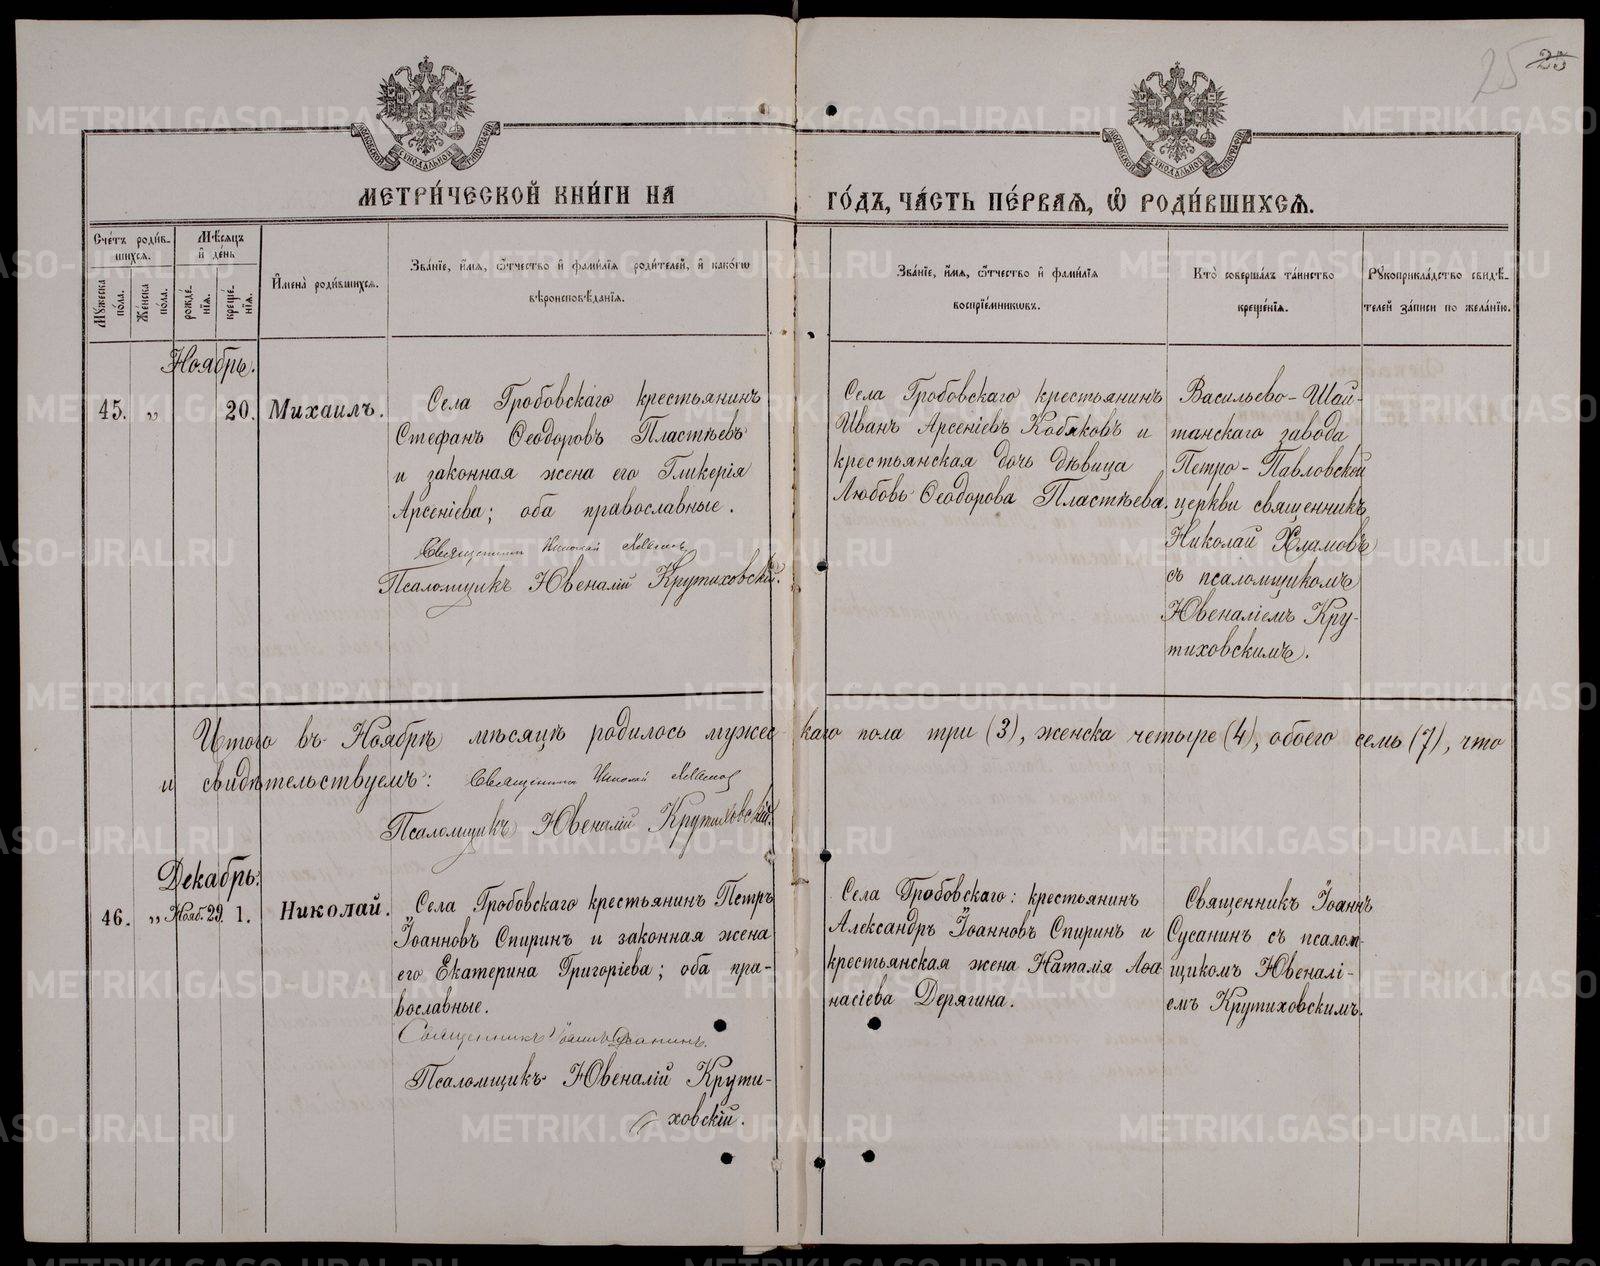 25 25
МОСКОВСКОЙ СѴНОДАЛЬНОЙ ТИПОГРАФІИ
МОСКОВСКОЙ СѴНОДАЛЬНОЙ ТИПОГРАФІИ
МЕТРИ́ЧЕСКОЙ КНИ́ГИ НА
ГО́ДЪ, ЧА́СТЬ ПЕ́РВАѦ, Ѽ РОДИ́ВШИХСѦ.
Сче́тъ роди́в-
шихсѧ.
Мꙋ́жеска по́ла.
Же́нска по́ла.
Мѣ́сѧцъ и҆ де́нь
рожде́нїѧ.
креще́нїѧ.
И҆мена̀ роди́вшихсѧ.
Зва́нїе, и҆́мѧ, ѻ҆́тчество и҆ фами́лїѧ роди́телей, и҆ како́гѡ
вѣроисповѣ́данїѧ.
Зва́нїе, и҆́мѧ, ѻ҆́тчество и҆ фами́лїѧ
воспрїе́мникѡвъ.
Кто̀ соверша́лъ та́инство
креще́нїѧ.
Рꙋкоприкла́дство свидѣ́-
телей за́писи по жела́нїю.
Ноябрь.
45. „ 20. Михаилъ.
Села Гробовскаго крестьянинъ
Стефанъ Ѳеодоровъ Пластѣевъ
и законная жена его Гликерія
Арсеніева; оба православные.
Священникъ Николай Хламовъ
Псаломщикъ Ювеналій Крутиховскій.
Села Гробовскаго крестьянинъ
Иванъ Арсеніевъ Кобяковъ и
крестьянская дочь дѣвица
Любовь Ѳеодорова Пластѣева.
Васильево-Шай-
танскаго завода
Петро-Павловской
церкви священникъ
Николай Хламовъ
съ псаломщикомъ
Ювеналіемъ Кру-
тиховскимъ.
Итого въ Ноябрѣ мѣсяцѣ родилось мужескаго пола три (3), женска четыре (4), обоего семь (7), что
и свидѣтельствуемъ: Священникъ Николай Хламовъ
Псаломщикъ Ювеналій Крутиховскій.
Декабрь.
46. „ Нояб. 29. 1. Николай.
Села Гробовскаго крестьянинъ Петръ
Іоанновъ Спиринъ и законная жена
его Екатерина Григоріева; оба пра-
вославные.
Священникъ Іоаннъ Сусанинъ.
Псаломщикъ Ювеналій Крути-
ховскій.
Села Гробовскаго: крестьянинъ
Александръ Іоанновъ Спиринъ и
крестьянская жена Наталія Аѳа-
насіева Дерягина.
Священникъ Іоаннъ
Сусанинъ съ псалом-
щикомъ Ювеналі-
емъ Крутиховскимъ.
METRIKI.GASO-URAL.RU